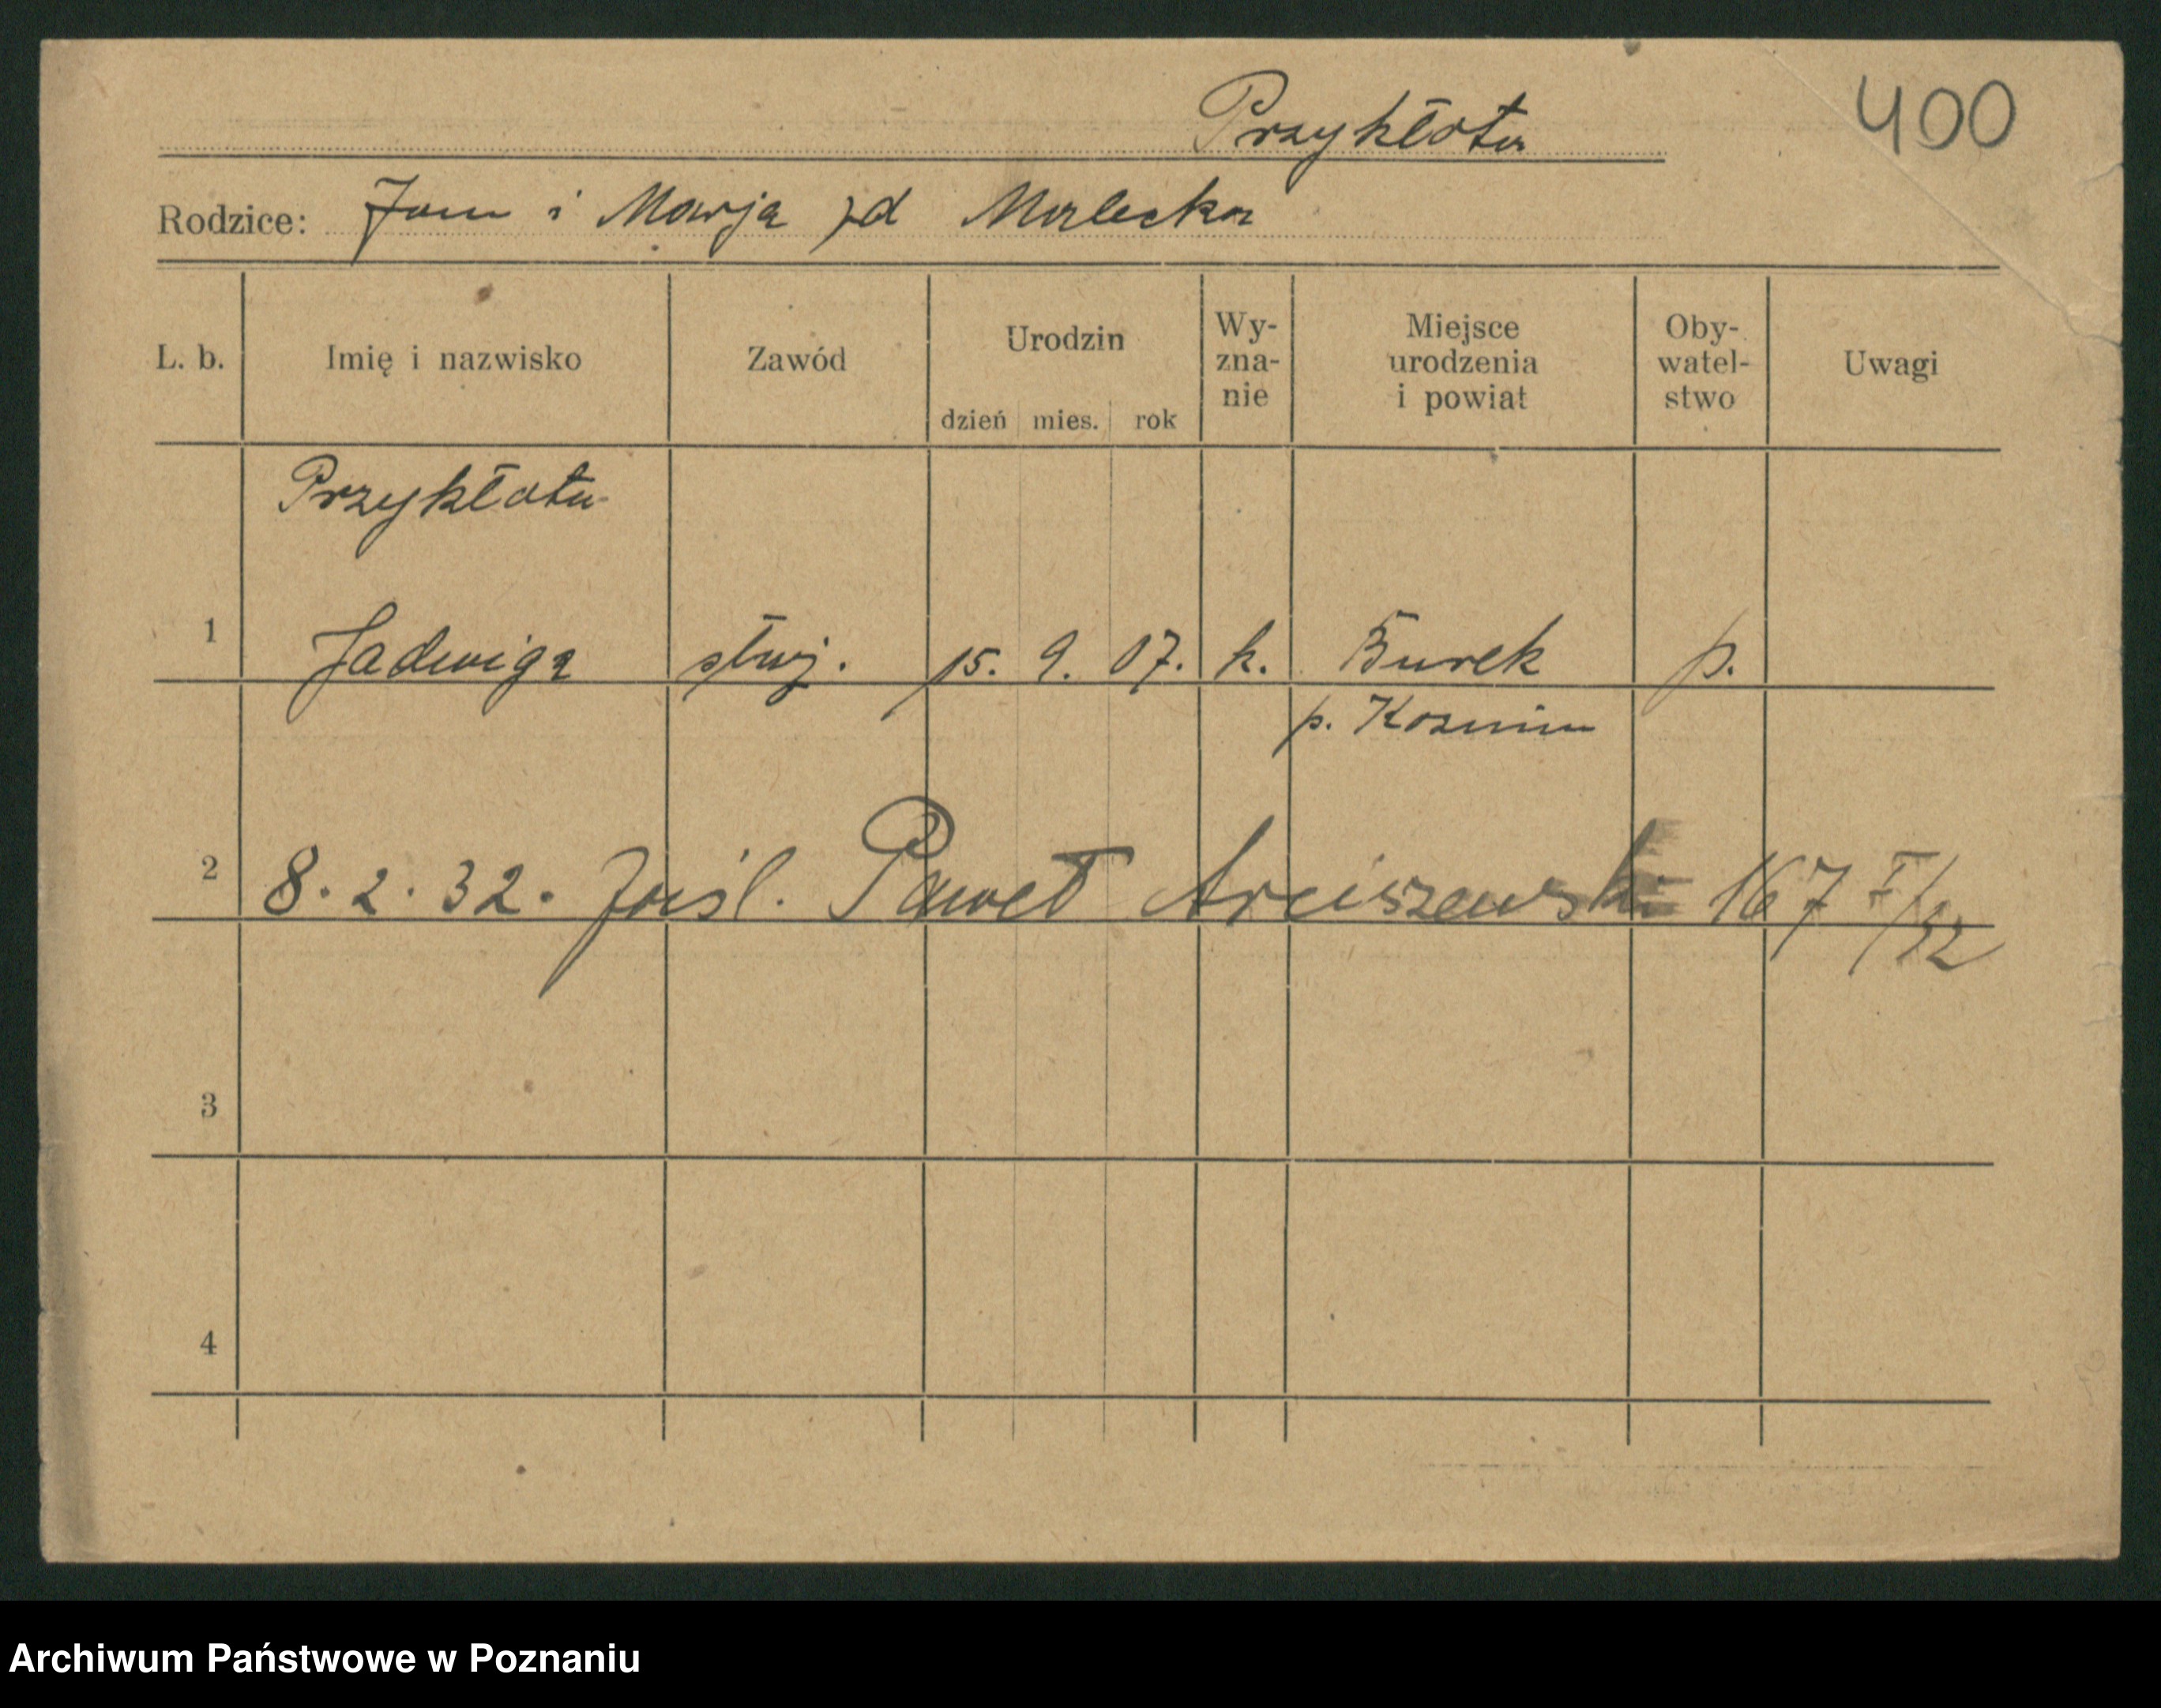 400
Przykłota
Rodzice: Jan i Marja zd Małecka
L. b. Imię i nazwisko Zawód Urodzin dzień mies. rok Wy-zna-nie Miejsce urodzenia i powiat Oby-watel-stwo Uwagi
Przykłota
1 Jadwiga służ. 15. 9. 07. k. Burek p.
p. Kozmin
2 8. 2. 32. Paweł Arciszewski 167 I/32
3
4
Archiwum Państwowe w Poznaniu